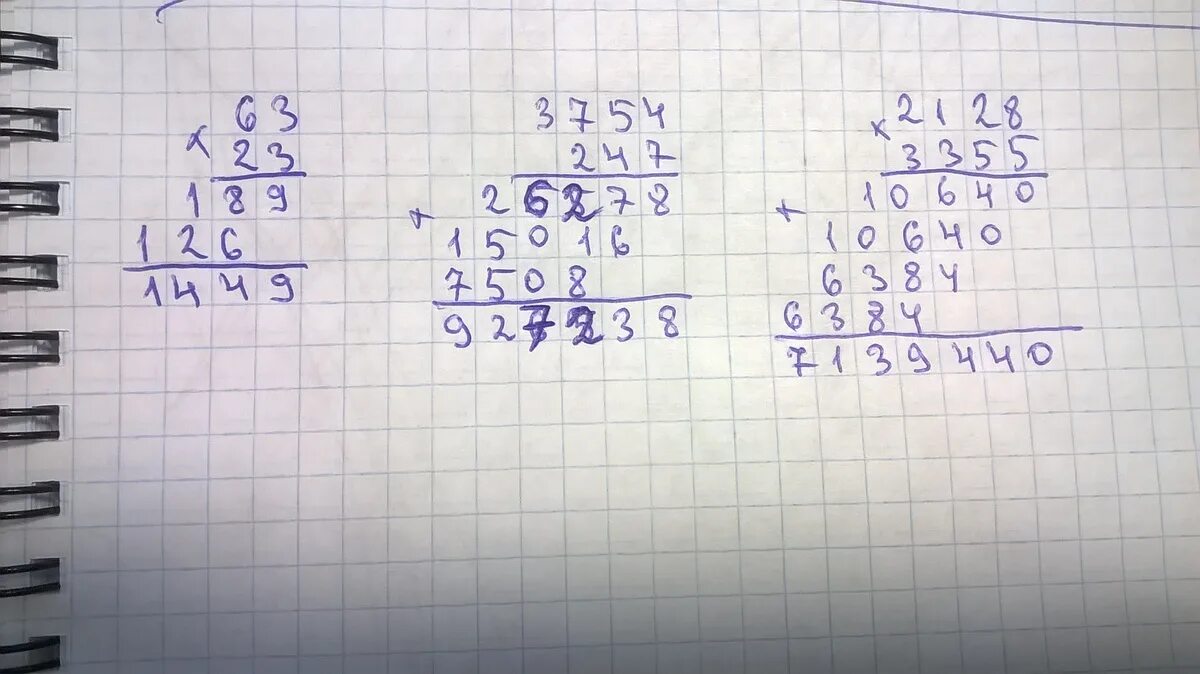 63
× 23
189
126
1449
3754
247
+ 26278
15016
7508
927238
× 2128
3355
+ 10640
10640
6384
6384
7139440